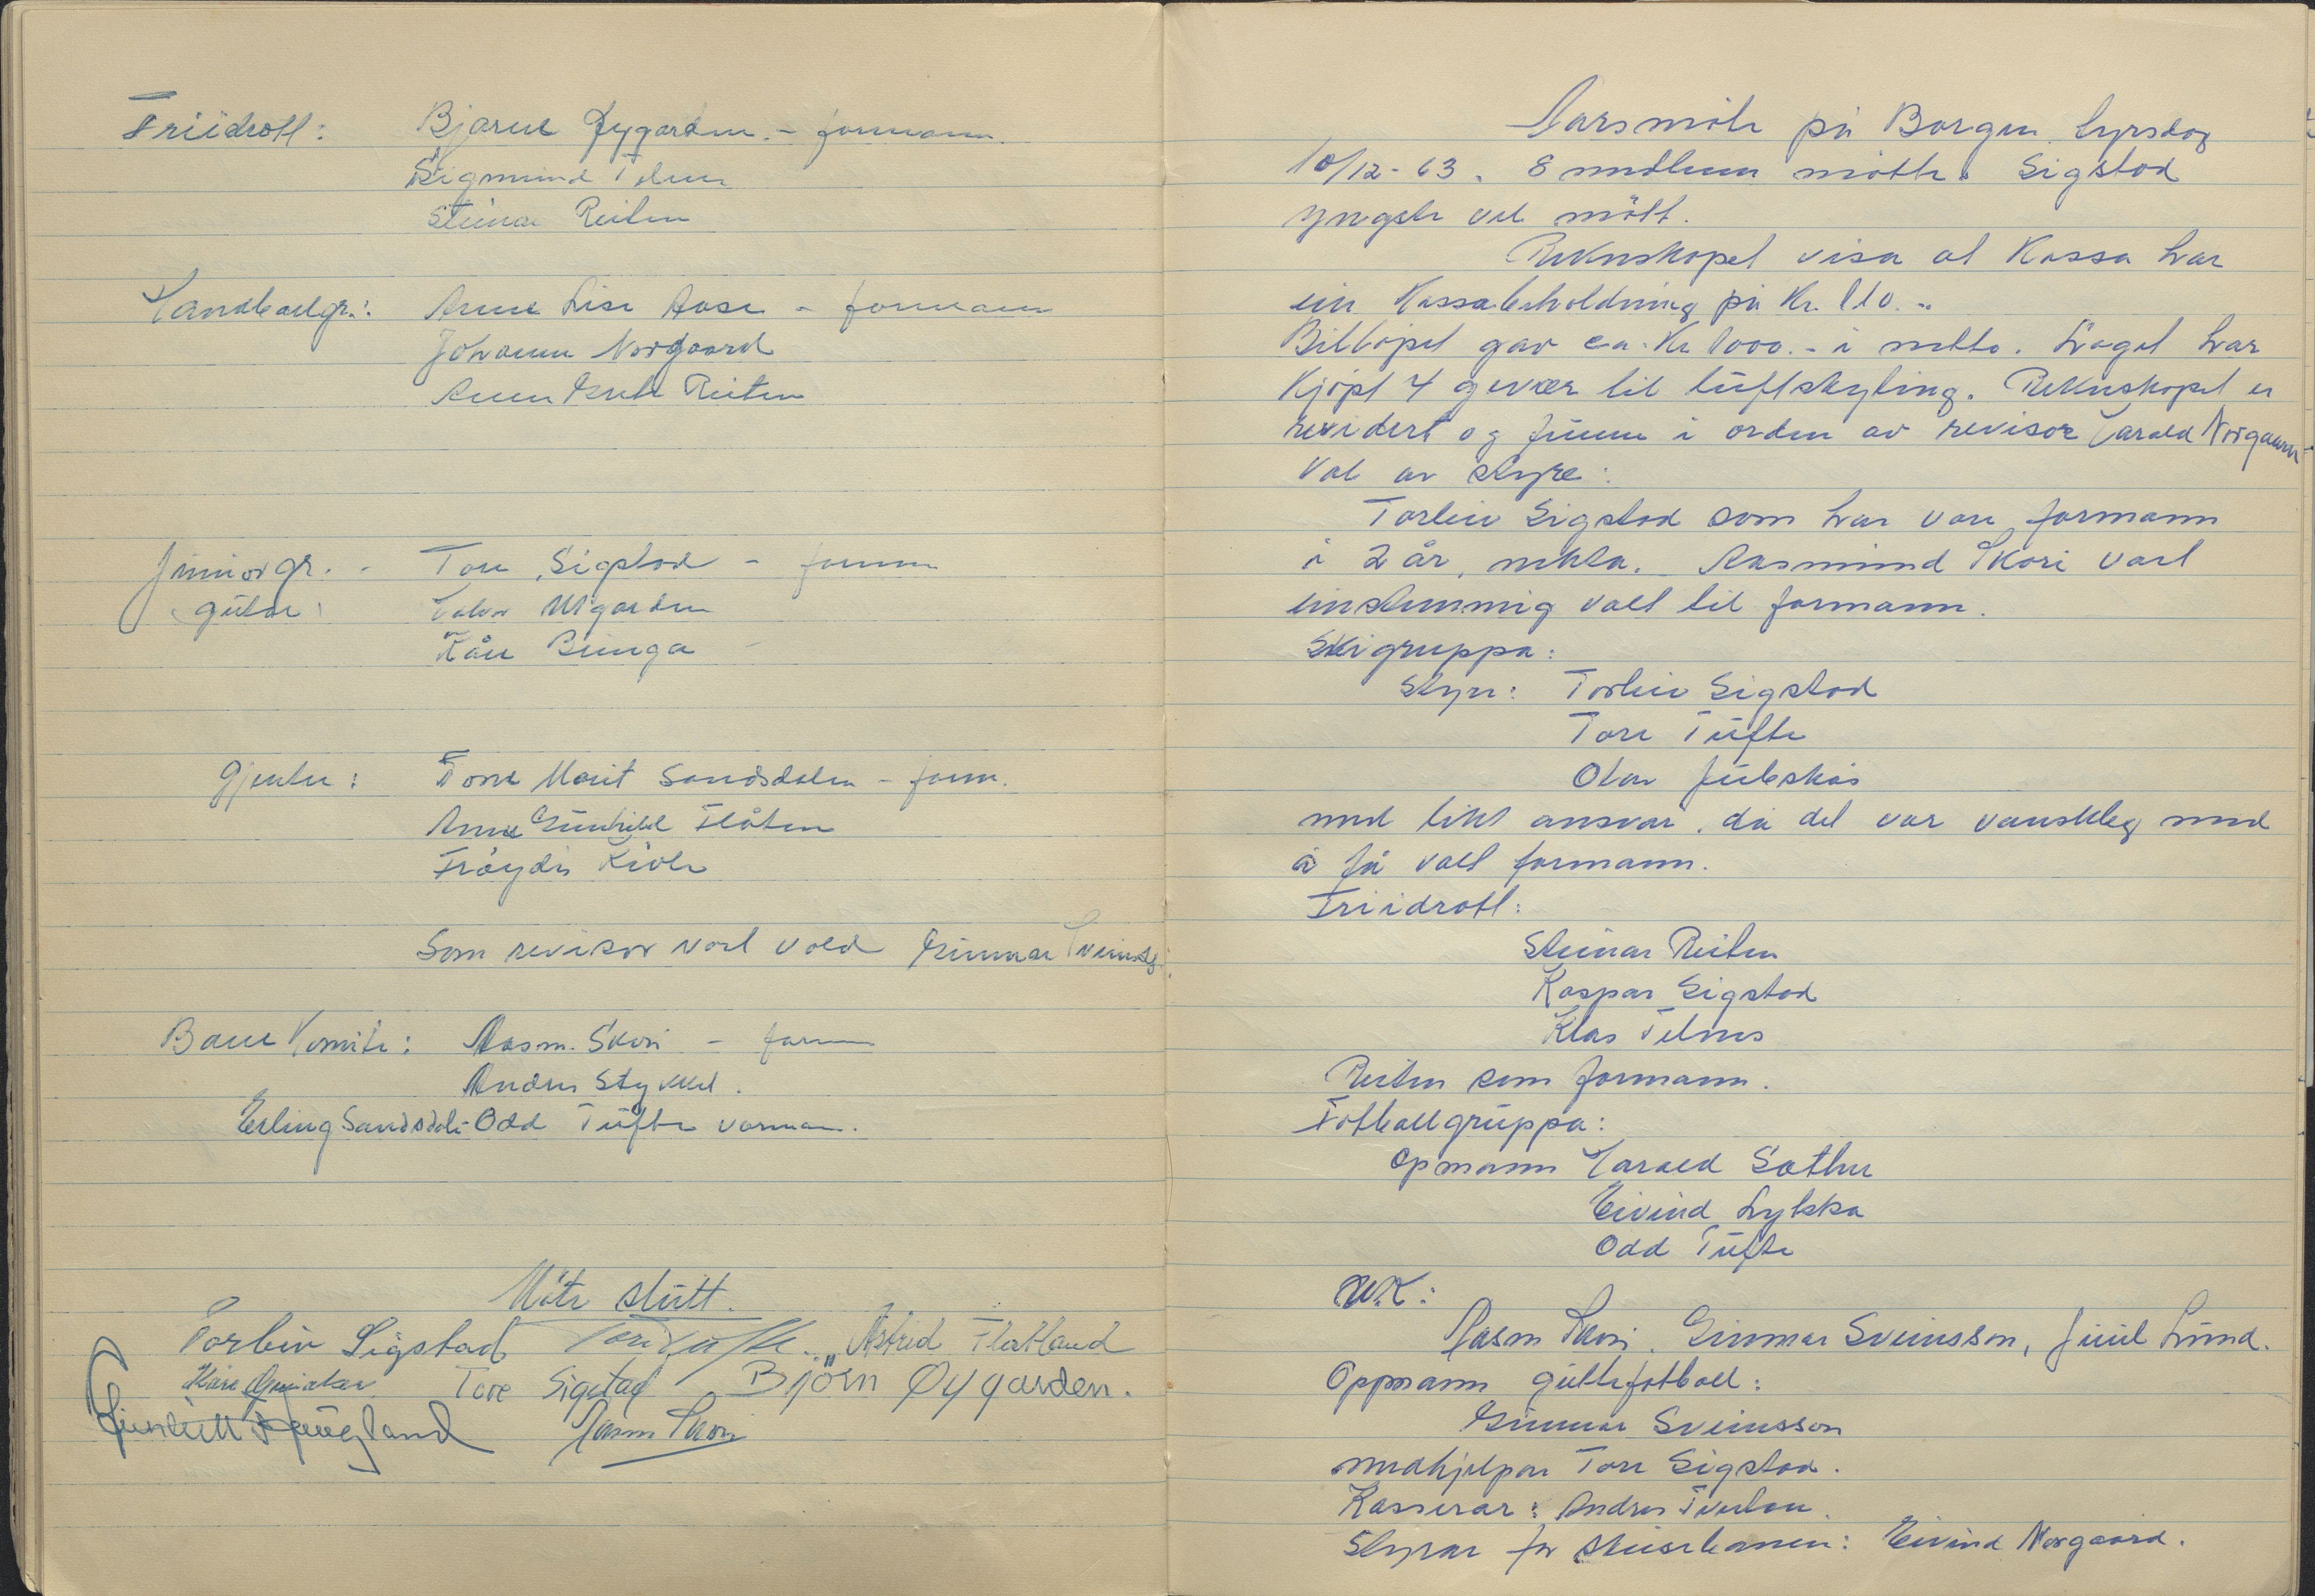 Friidrott: Bjarne Øygarden - formann.
Sigmund Telnes
Steinar Reiten
Handballgr.: Anne Lise Aase - formann
Johanne Norgaard
Anne Grete Reiten
Juniorgr. - Tore Sigstad - formann
gutar: Halvor Uvgarden
Kåre Bunga
Gjenter: Tone Marit Sandsdalen - form.
Anne Gunhild Flåten
Frøydis Kivle
Som revisor vart vald Gunnar
Bane Komite: Aasm. Skori - form
Andres Stykket.
Erling Sandsdal - Odd Tufte varmann.
Møte slutt.
Torleiv Sigstad Tore Tufte. Astrid Flatland
Kåre Tore Sigstad Bjørn Øygarden.
Haugland Aasm Skori
Aarsmøte på Borgen tyrsdag
10/12-63. 8 medlem møtte. Sigstad
yngste vel møtt.
Rekneskapet visa at Kassa har
ein Kassabeholdning på Kr. 110.-
Billøpet gav ca. Kr 1000.- i netto. Laget har
Kjøpt 4 gevær til luftskyting. Rekneskapet er
revidert og funne i orden av revisor Harald Norgaard
Val av styre:
Torleiv Sigstad som har vore formann
i 2 år, nekta. Aasmund Skori vart
einstemmig valt til formann.
Skigruppa:
Styre: Torleiv Sigstad
Tore Tufte
Olav Juveskås
med likt ansvar, då det var vanskleg med
å få valt formann.
Friidrott:
Steinar Reiten
Kaspar Sigstad
Klas Telnes
Reiten som formann.
Fotballgruppa:
Opmann Harald Sæther
Eivind Lykka
Odd Tufte
U.K:
Aasm Skori, Gunnar Sveinsson, Juul Lund.
Oppmann guttefotball:
Gunnar Sveinsson
medhjelpar Tore Sigstad.
Kasserar: Andres Tveitan.
Styrar for skeisebanen: Eivind Norgaard.